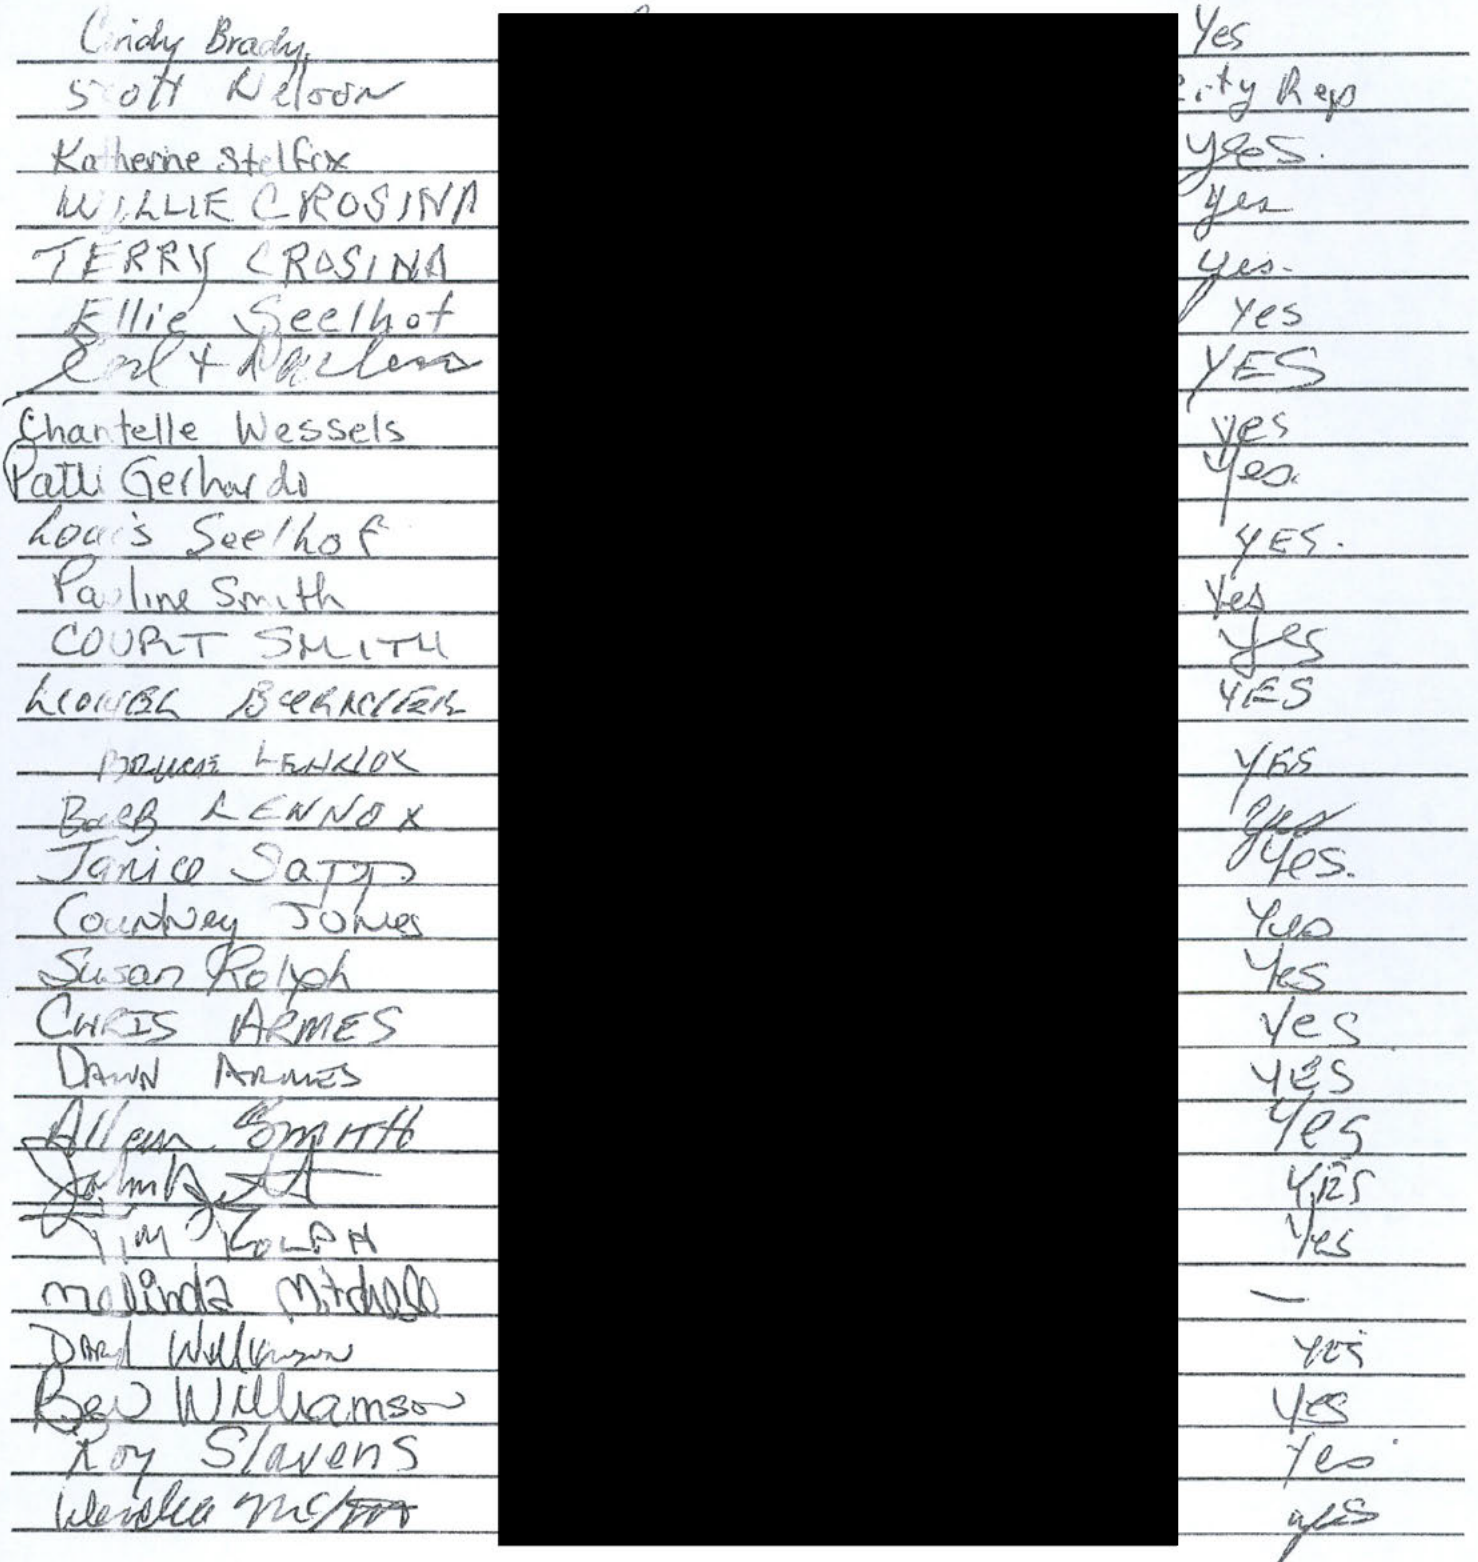 Cindy Brady Yes
Scott Nelson City Rep
Katherine Stelfox yes.
WILLIE CROSINA yes
TERRY CROSINA yes.
Ellie Seelhof Yes
YES
Chantelle Wessels yes
Patti Gerhardi Yes.
Louis Seelhof YES.
Pauline Smith Yes
COURT SMITH Yes
YES
LENNOX YES
BARB LENNOX Yes
Janice Sapp Yes.
Courtney Jones Yes
Susan Rolph Yes
CHRIS ARMES Yes
DAWN ARMES YES
Allan SmITH Yes
John YES
Tim ROLPH Yes
Melinda Mitchell —
Daryl Williamson yes
Bev Williamson Yes
Roy Slavens Yes
yes